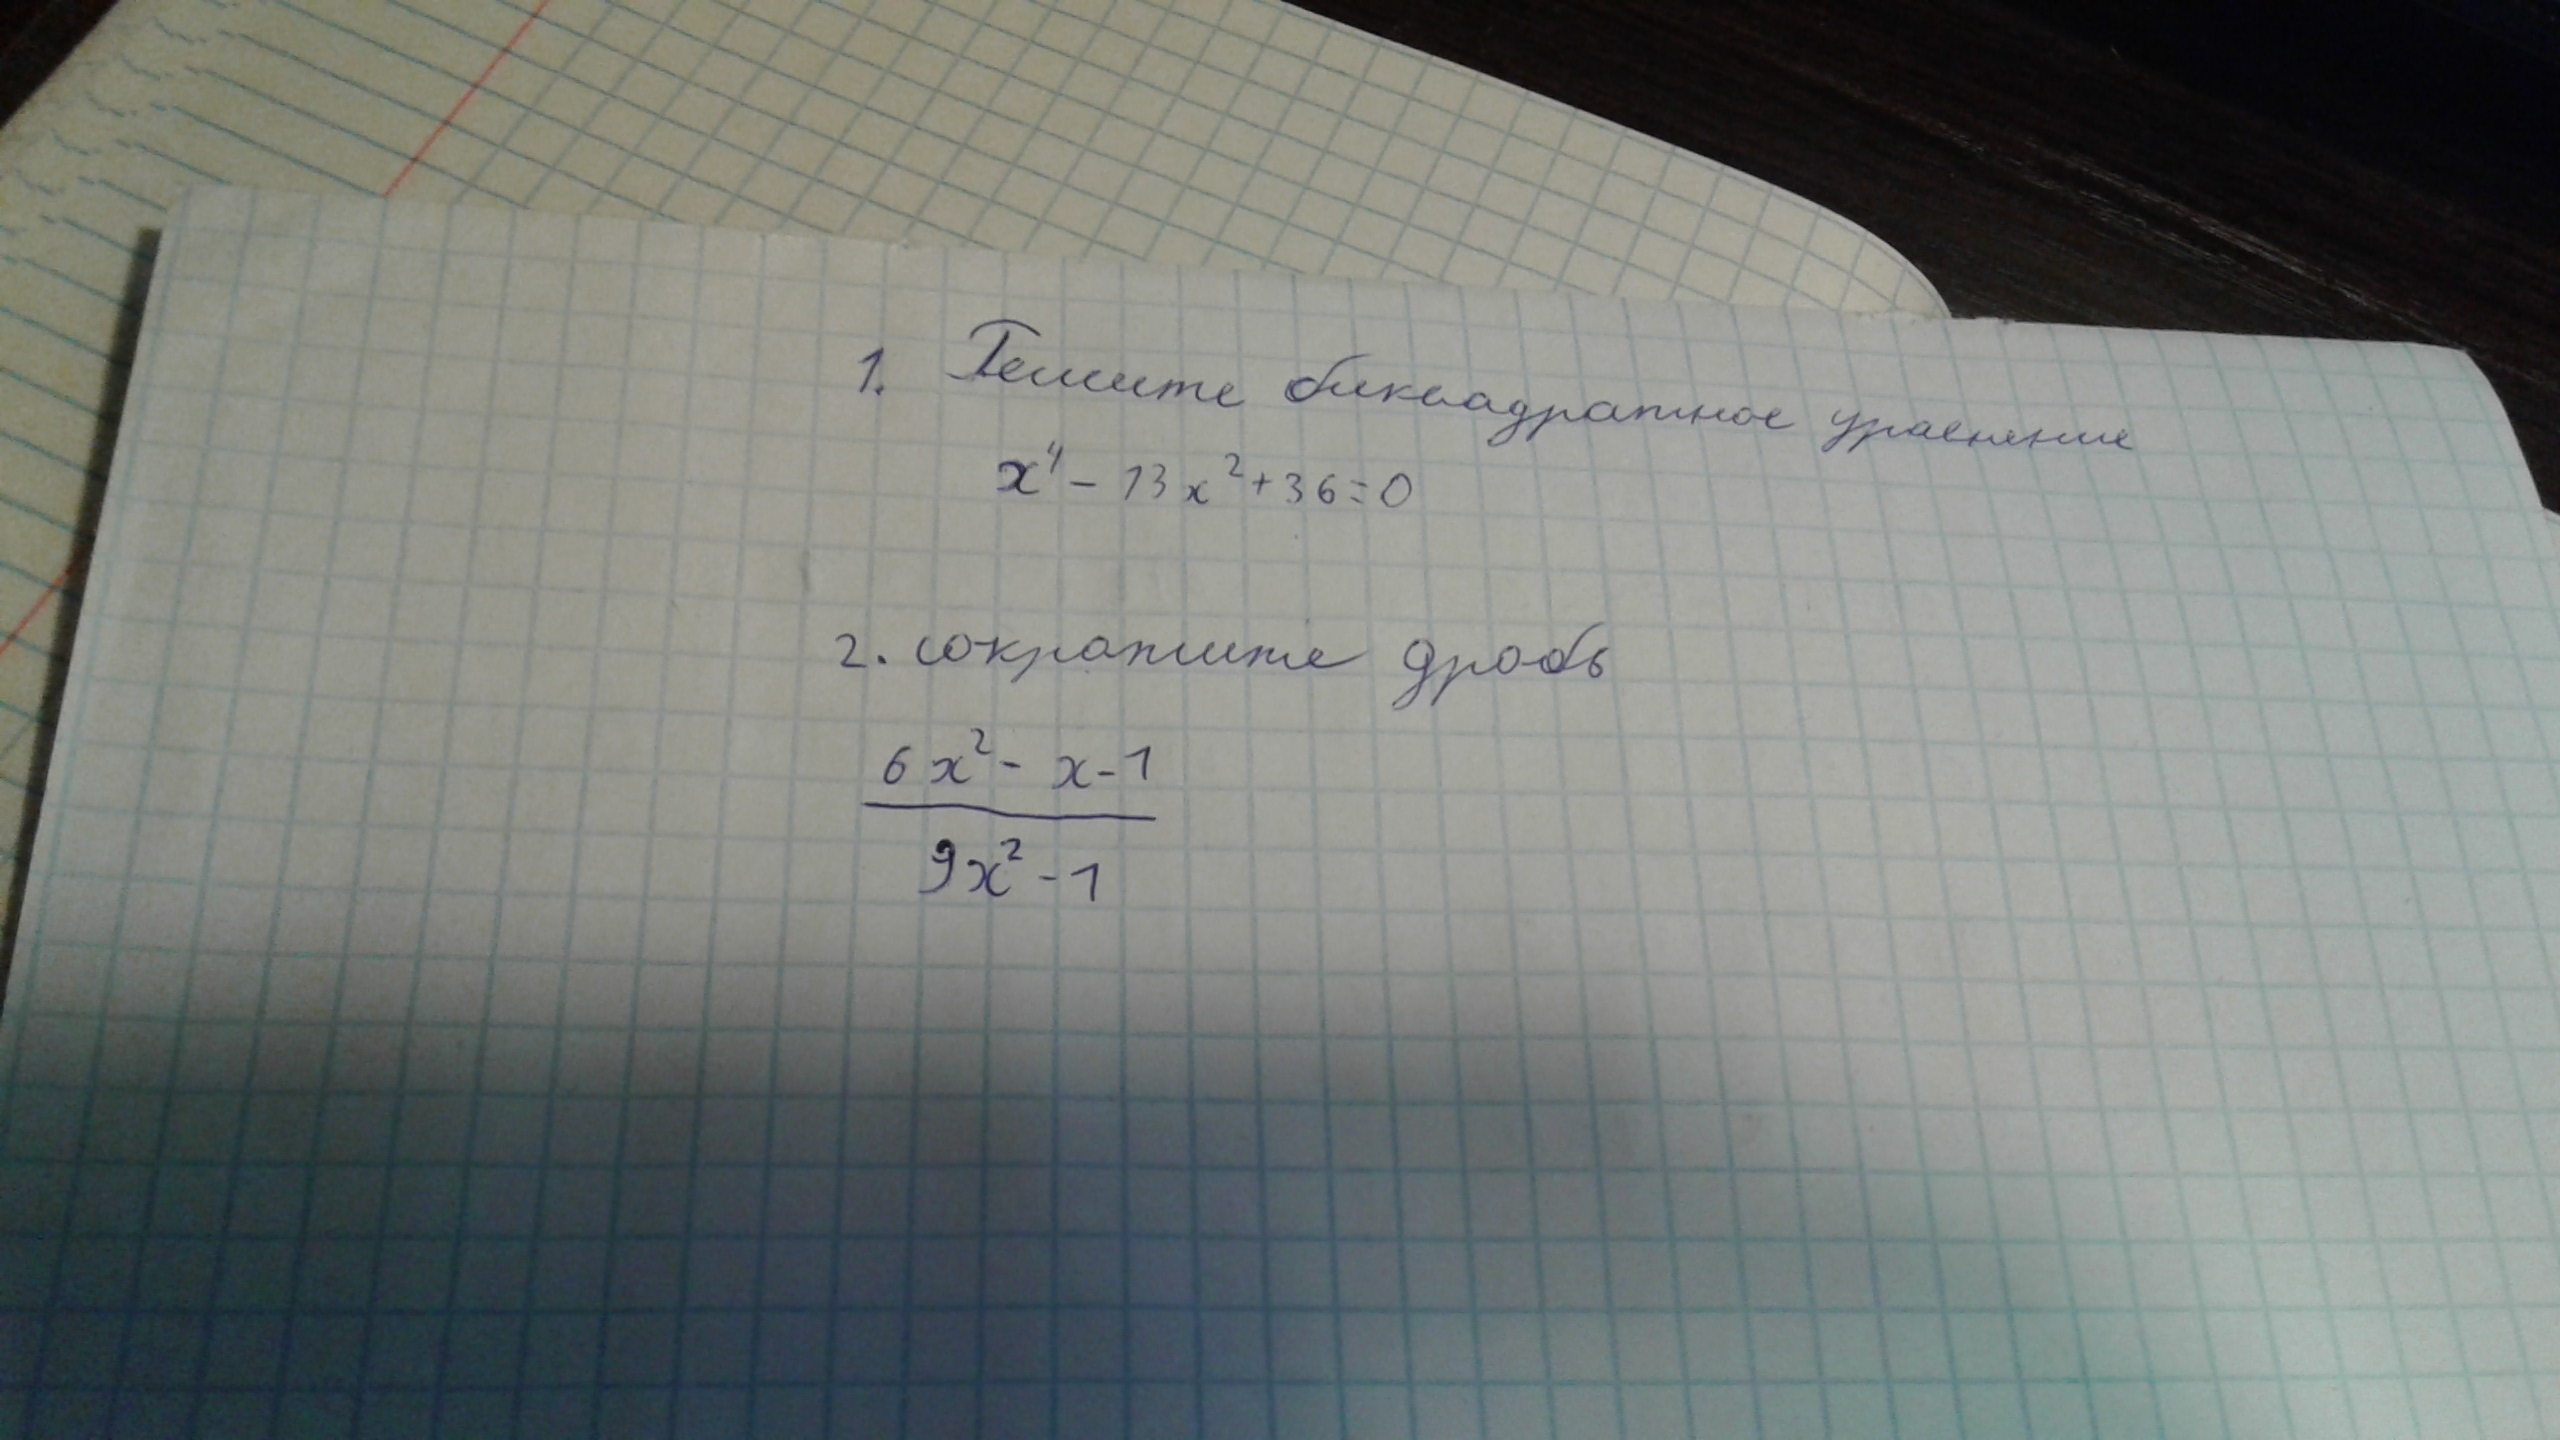 1. Решите биквадратное уравнение
x⁴ - 13x² + 36 = 0
2. сократите дробь
6x² - x - 1
9x² - 1